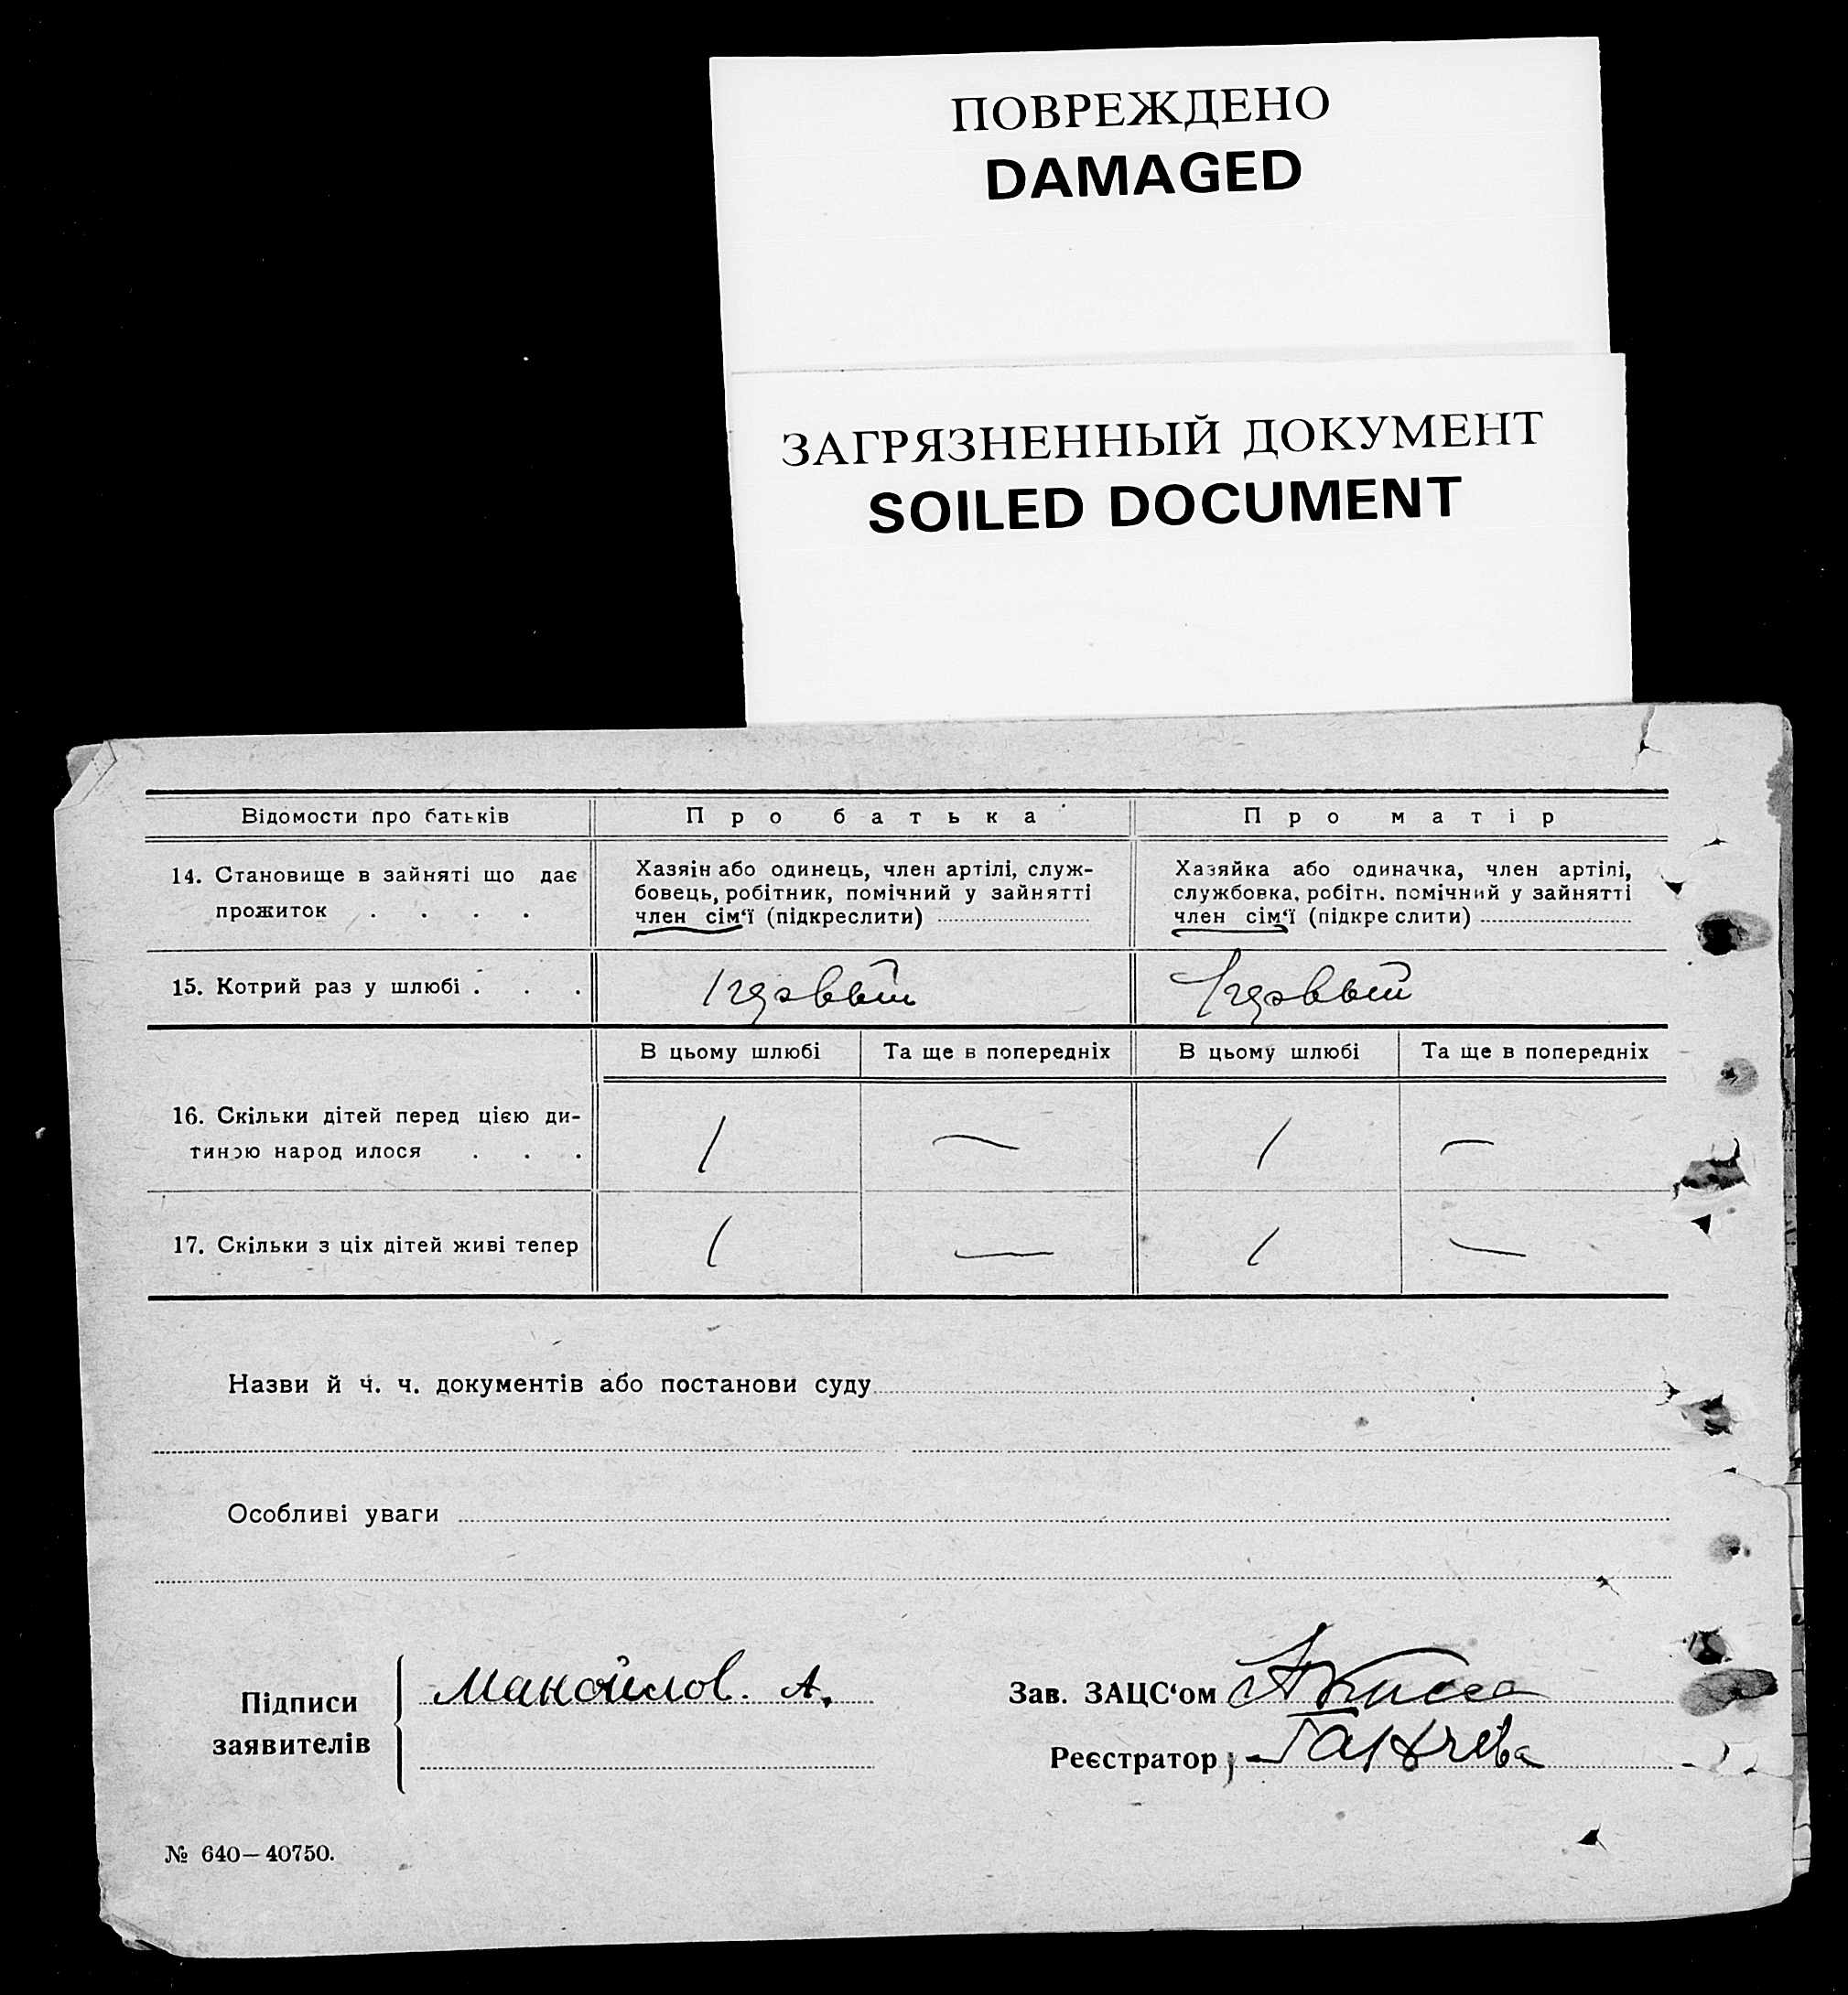 ПОВРЕЖДЕНО
DAMAGED
ЗАГРЯЗНЕННЫЙ ДОКУМЕНТ
SOILED DOCUMENT
Відомости про батьків
Про батька
Про матір
14. Становище в зайняті що дає
прожиток . . . .
Хазяін або одинець, член артілі, служ-
бовець, робітник, помічний у зайнятті
член сім‘ї (підкреслити)
Хазяйка або одиначка, член артілі,
службовка, робітн. помічний у зайнятті
член сім‘ї (підкре слити)
15. Котрий раз у шлюбі . . .
первый
первый
В цьому шлюбі
Та ще в попередніх
В цьому шлюбі
Та ще в попередніх
16. Скільки дітей перед цією ди-
тиною народ илося . . .
1 — 1 —
17. Скільки з ціх дітей живі тепер
1 — 1 —
Назви й ч. ч. документів або постанови суду
Особливі уваги
Підписи
заявителів
Манойлов. А.
Зав. ЗАЦС‘ом
Реєстратор
№ 640—40750.